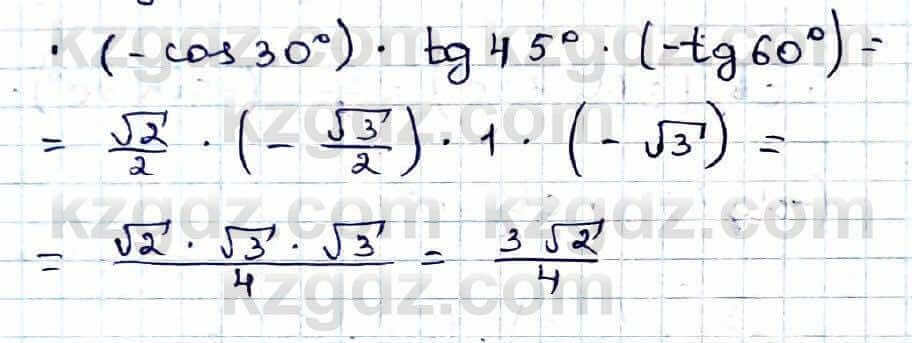 · (-cos 30°) · tg 45° · (-tg 60°) =
= √2/2 · (- √3/2) · 1 · (- √3) =
= (√2 · √3 · √3)/4 = 3√2/4
kzgdz.com kzgdz.com
kzgdz.com kzgdz.com
kzgdz.com